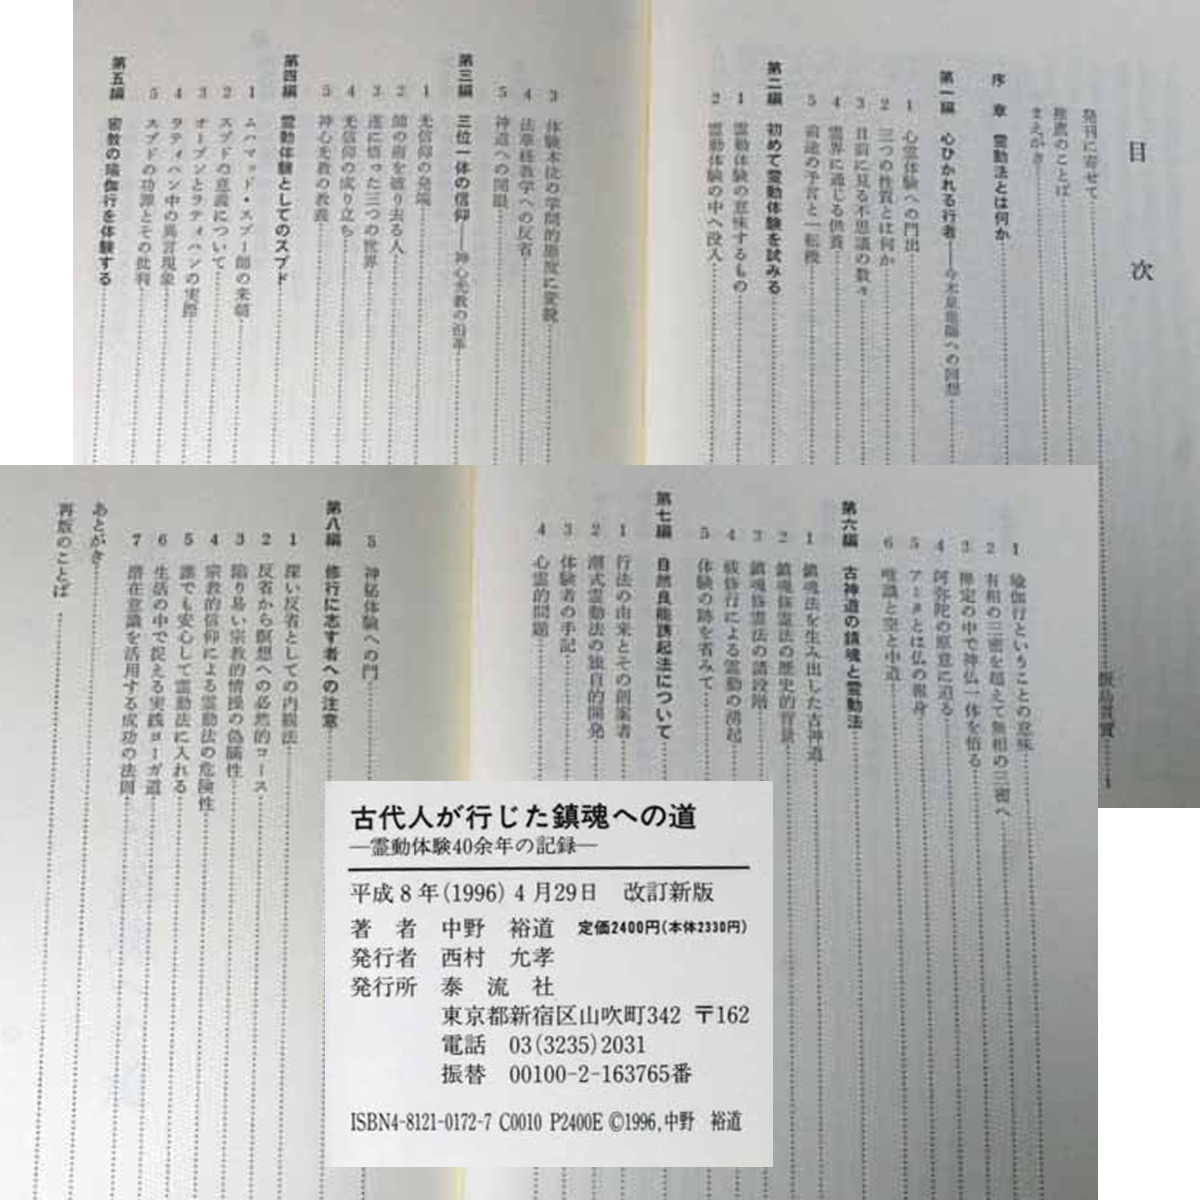 目次
発刊に寄せて
推薦のことば
まえがき
序章 霊動法とは何か
第一編 心ひかれる行者——今木是竜師への回想
1 心霊体験への門出
2 三つの性質とは何か
3 目前に見る不思議の数々
4 霊界に通じる供養
5 前途の予言と一転機
第二編 初めて霊動体験を試みる
1 霊動体験の意味するもの
2 霊動体験の中へ没入
3 体験本位の学問的態度に変貌
4 法華経教学への反省
5 神道への開眼
第三編 三位一体の信仰——神心光教の沿革
1 光信仰の発端
2 師の術を破り去る人
3 遂に悟った三つの世界
4 光信仰の成り立ち
5 神心光教の教義
第四編 霊動体験としてのスブド
1 ムハマッド・スブー師の来朝
2 スブドの意義について
3 オープンとラティハンの実際
4 ラティハン中の異言現象
5 スブドの功罪とその批判
第五編 密教の瑜伽行を体験する
1 瑜伽行ということの意味
2 有相の三密を超えて無相の三密へ
3 禅定の中で神仏一体を悟る
4 阿弥陀の原意に迫る
5 アーヌとは仏の報身
6 唯識と空と中道
第六編 古神道の鎮魂と霊動法
1 鎮魂法を生み出した古神道
2 鎮魂修霊法の歴史的背景
3 鎮魂修霊法の諸段階
4 祓修行による霊動の湧起
5 体験の跡を省みて
第七編 自然良能誘起法について
1 行法の由来とその創案者
2 潮式霊動法の独自的開発
3 体験者の手記
4 心霊的問題
5 神秘体験への門
第八編 修行に志す者への注意
1 深い反省としての内観法
2 反省から瞑想への必然的コース
3 陥り易い宗教的情操の偽瞞性
4 宗教的信仰による霊動法の危険性
5 誰でも安心して霊動法に入れる
6 生活の中で捉える実践ヨーガ道
7 潜在意識を活用する成功の法則
あとがき
再版のことば
古代人が行じた鎮魂への道
—霊動体験40余年の記録—
平成8年(1996)4月29日 改訂新版
著者 中野 裕道 定価2400円(本体2330円)
発行者 西村 允孝
発行所 泰流社
東京都新宿区山吹町342 〒162
電話 03(3235)2031
振替 00100-2-163765番
ISBN4-8121-0172-7 C0010 P2400E ©1996,中野 裕道